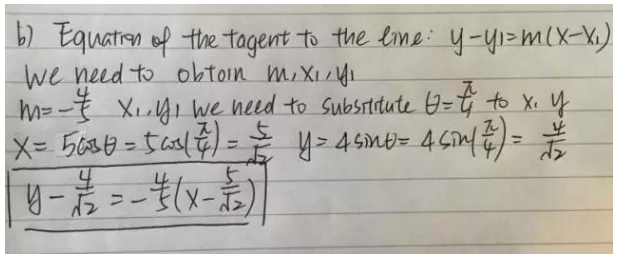 b) Equation of the tagent to the line: y-y₁=m(x-x₁)
We need to obtain m, x₁, y₁
m=-4/5 x₁, y₁ we need to substitute θ=π/4 to x, y
x= 5cosθ = 5cos(π/4) = 5/√2 y= 4sinθ= 4sin(π/4)= 4/√2
y-4/√2 = -4/5(x-5/√2)